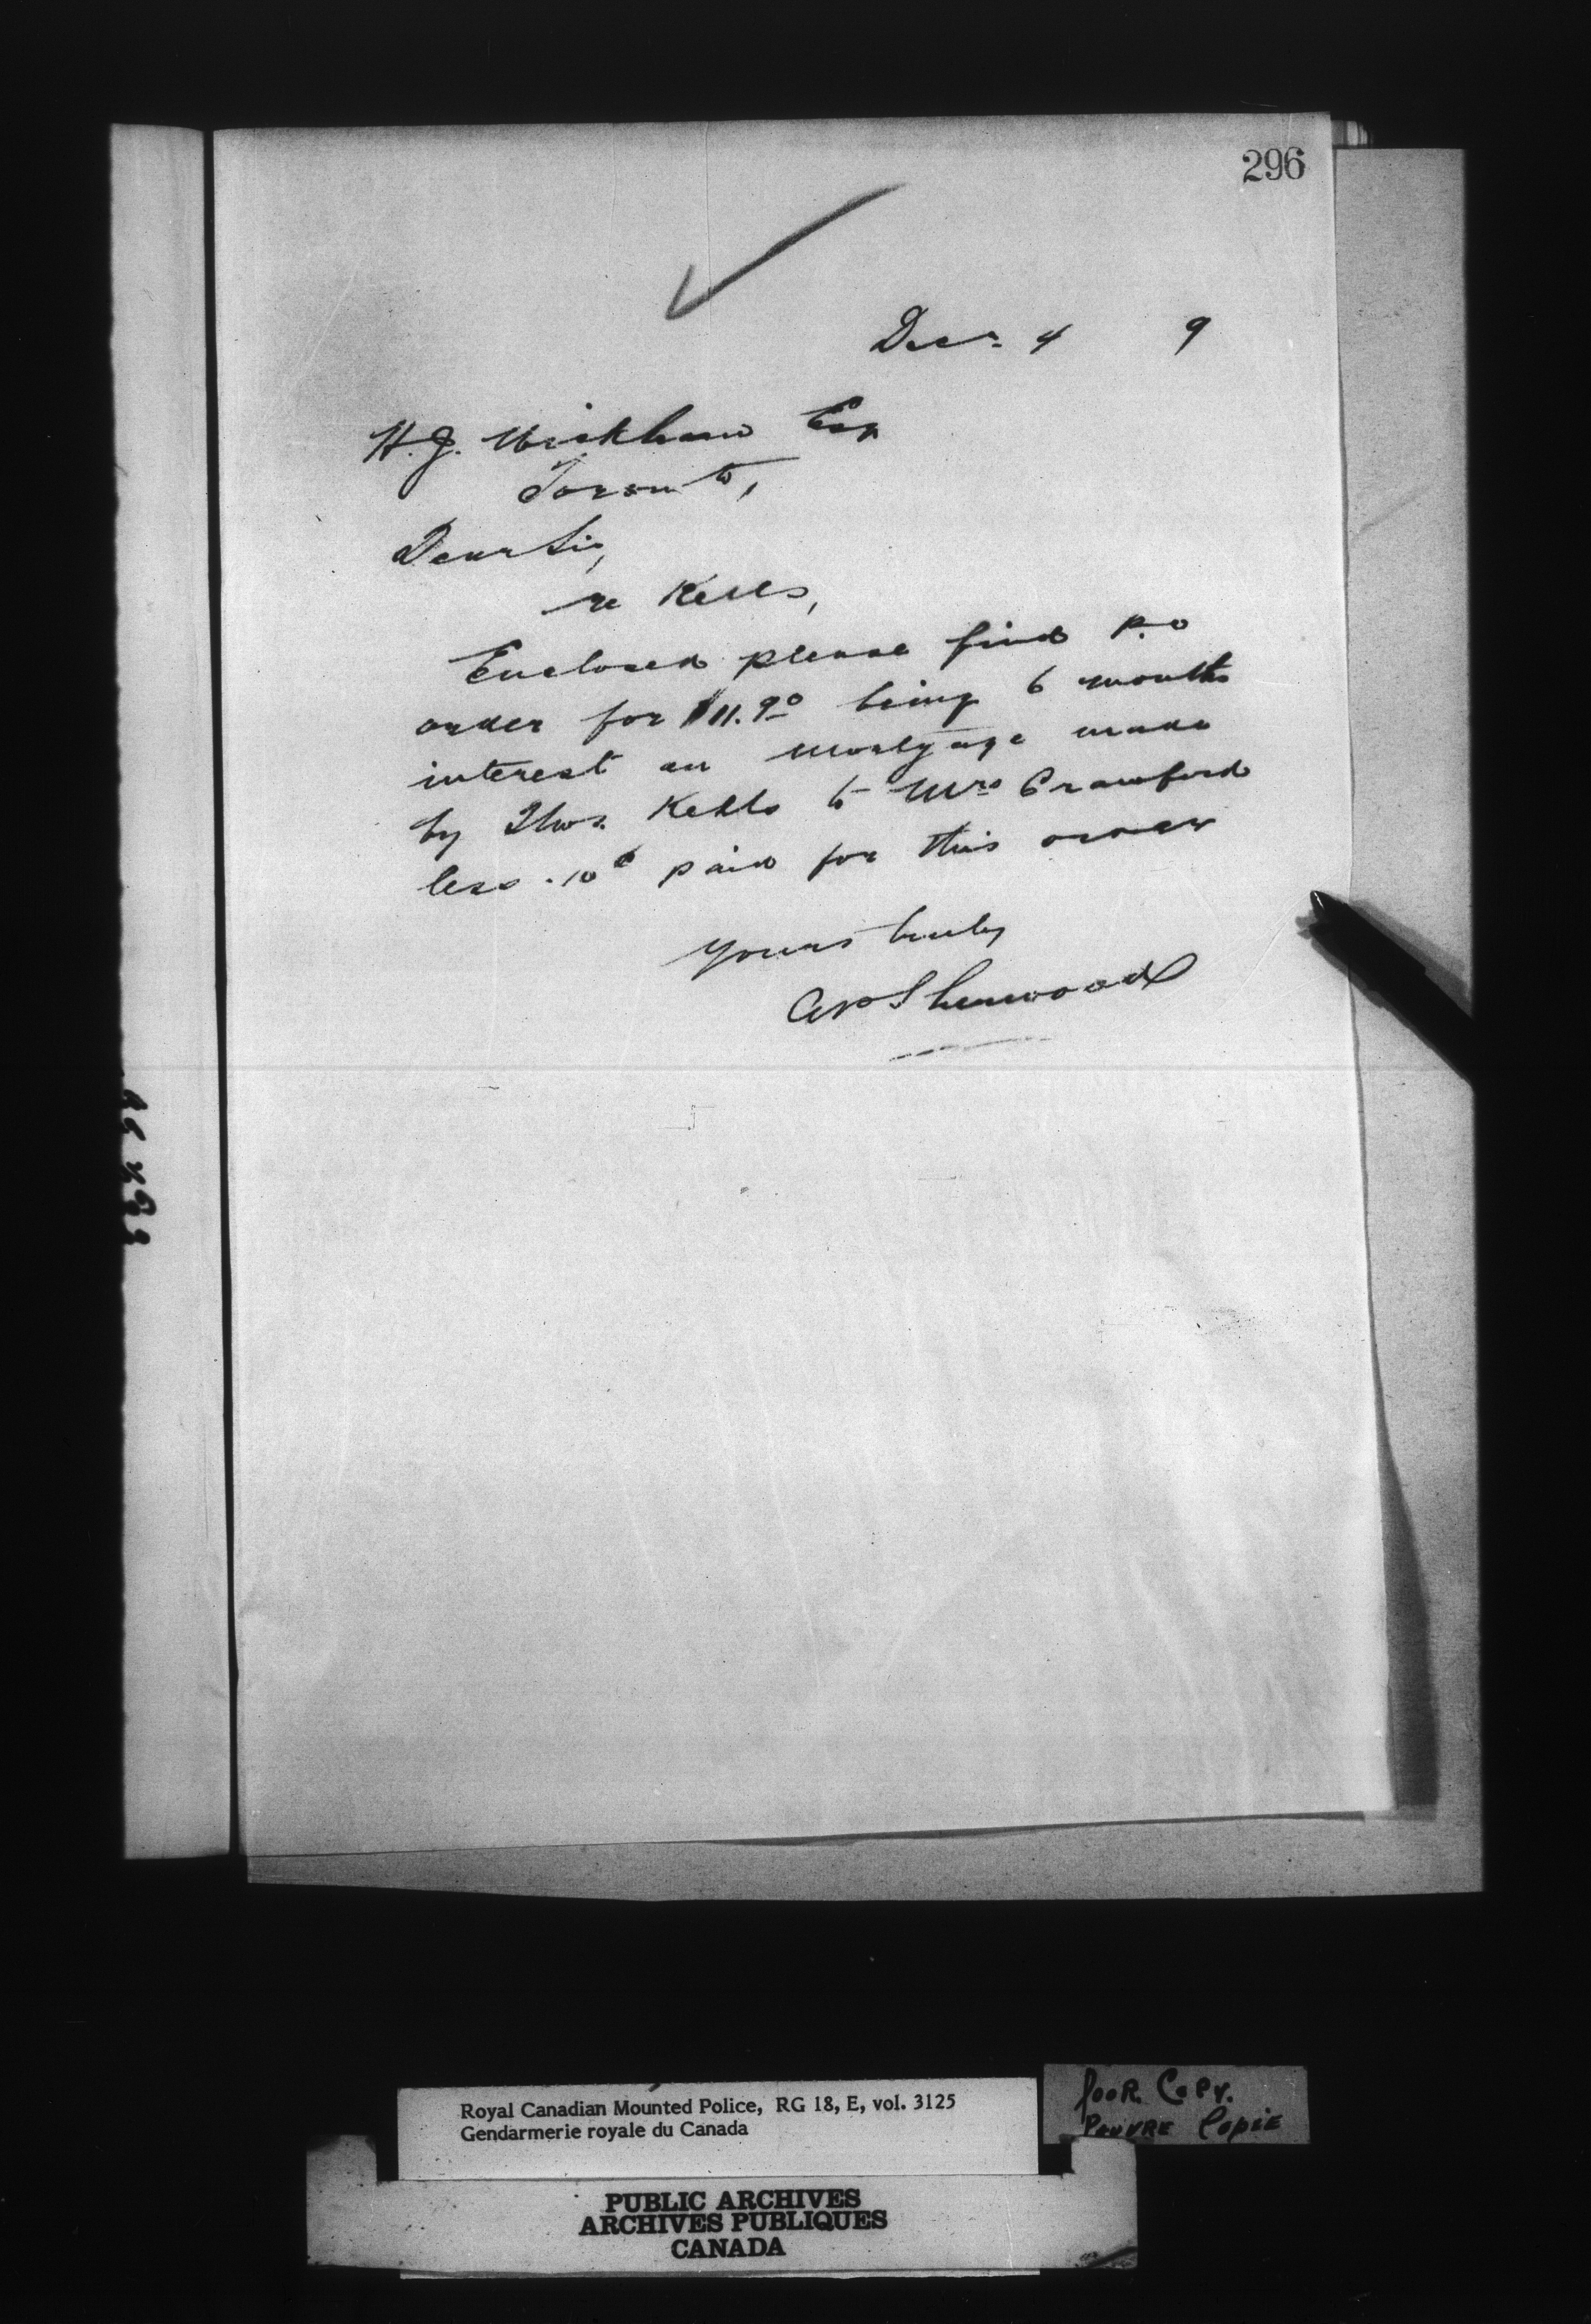 296
Decr 4 9
H. J. Wickham Esq
Toronto,
Dear Sir,
re Kells,
Enclosed please find P.O
order for $11.90 being 6 months
interest on mortgage made
by Thos. Kells to Mrs Crawford
less .10¢ paid for this order
Yours truly
AP Sherwood
Royal Canadian Mounted Police, RG 18, E, vol. 3125
Gendarmerie royale du Canada
POOR COPY.
PAUVRE COPIE
PUBLIC ARCHIVES
ARCHIVES PUBLIQUES
CANADA